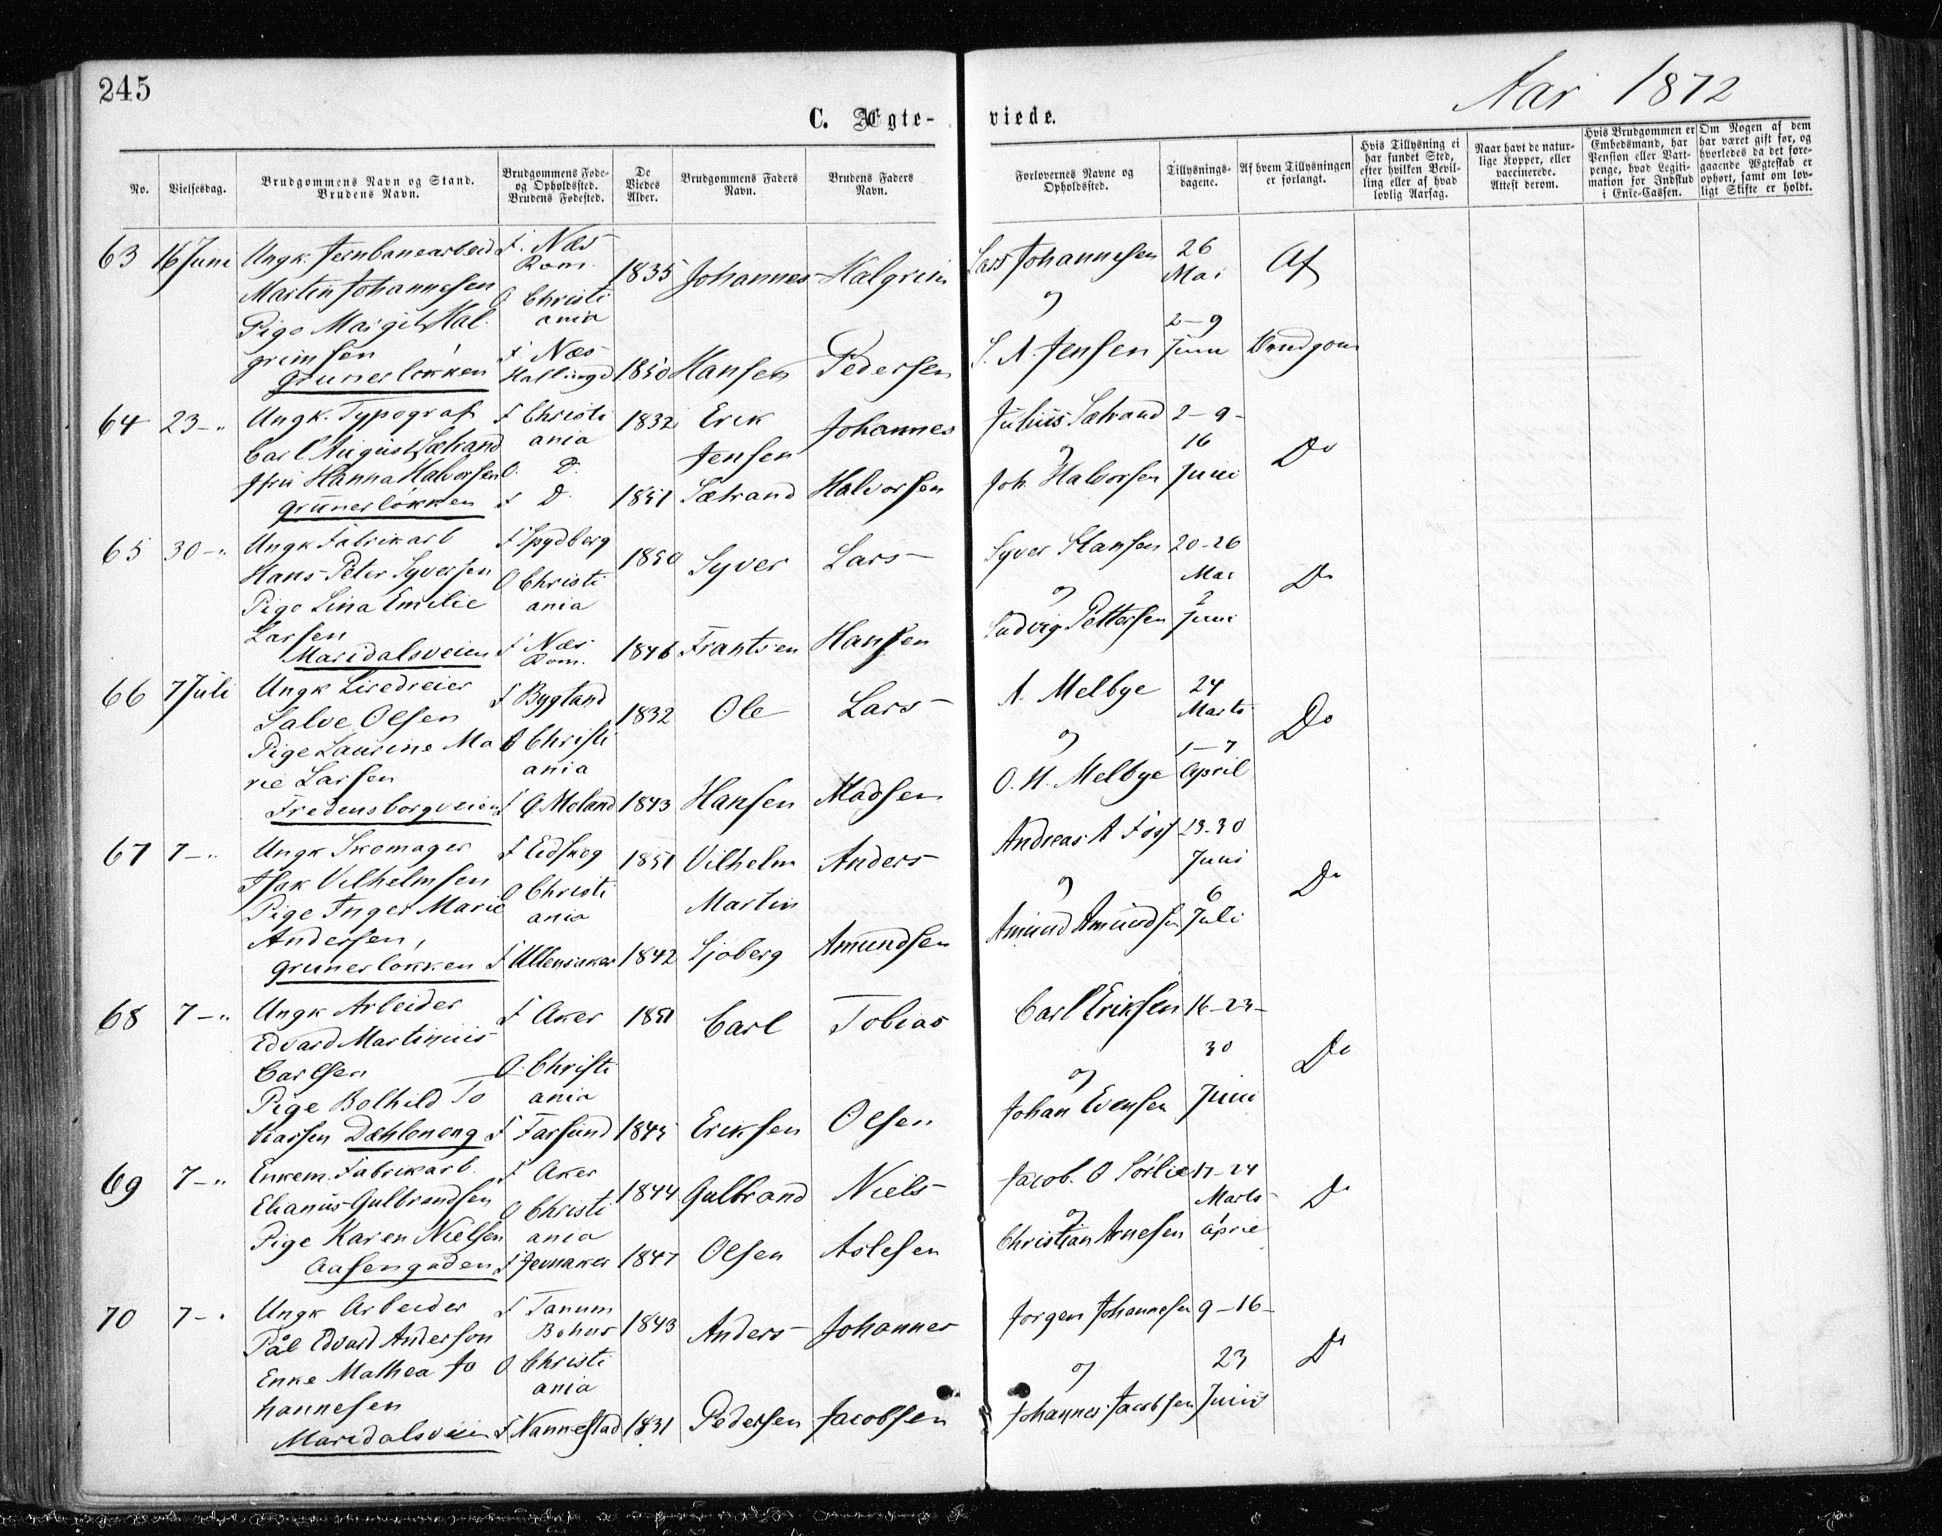 245
Aar 1872
C. Ægte-
viede.
No.
Vielsesdag.
Brudgommens Navn og Stand.
Brudens Navn.
Brudgommens Føde-
og Opholdssted.
Brudens Fødested.
De
Viedes
Alder.
Brudgommens Faders
Navn.
Brudens Faders
Navn.
Forlovernes Navne og
Opholdssted.
Tillysnings-
dagene.
Af hvem Tillysningen
er forlangt.
Hvis Tillysning ei
har fundet Sted,
efter hvilken Bevil-
ling eller af hvad
lovlig Aarsag.
Naar havt de natur-
lige Kopper, eller
vaccinerede.
Attest derom.
Hvis Brudgommen er
Embedsmand, har
Pension eller Vart-
penge, hvad Legiti-
mation for Indskud
i Enke-Cassen.
Om Nogen af dem
har været gift før, og
hvorledes da det fore-
gaaende Ægteskab er
ophørt, samt om lov-
ligt Skifte er holdt.
63 16 Juni
Ungk. Jernbanearbeid
Martin Johannesen
Pige Margit Hal-
grimsen
Grunerløkken
F. Næs
Rom.
O Christi
ania
F Næs
Hallingd
1835
1850
Johannes
Hansen
Halgrim
Pedersen
Lars Johannesen
og
S. A. Jensen
26
Mai
2-9
Juni
Af
Brudgom
64 23-"
Ungk. Typograf
Carl August Sætrand
Jfru Hanna Halvorsen
Grünerløkken
F Christi
ania
O. D.
F D.
1832
1851
Erik
Jensen
Sætrand
Johannes
Halvorsen
Julius Sætrand
og
Joh. Halvorsen
2-9-
16
Juni
Do
65 30-"
Ungk Fabrikarb
Hans Peter Syversen
Pige Lina Emilie
Larsen
Maridalsveien
F Spydberg
O Christi
ania
F Næs
Rom.
1850
1846
Syver
Frantsen
Lars
Hansen
Syver Hansen
og
Ludvig Pettersen
20-26
Mai
2
Juni
Do
66 7 Juli
Ungk Liredreier
Salve Olsen
Pige Laurine Ma
rie Larsen
Fredensborgveien
F Bygland
O Christi
ania
F Ø Moland
1832
1843
Ole
Hansen
Lars
Madsen
A. Melbye
og
O. H. Melbye
24
Marts
1-7
April
Do
67 7-"
Ungk Skomager
Isak Vilhelmsen
Pige Inger Marie
Andersen,
Grunerløkken
F Eidskog
O Christi
ania
F Ullensaker
1851
1842
Vilhelm
Martin
Sjøberg
Anders
Amundsen
Andreas A
og
Amund Amundsen
23-30
Juni
6
Juli
Do
68 7-"
Ungk Arbeider
Edvard Martinius
Carlsen
Pige Bolhild To
biassen Dæhleneng
F Aker
O. Christi
ania
F Farsund
1851
1845
Carl
Eriksen
Tobias
Olsen
Carl Eriksen
og
Johan Evensen
16-23-
30
Juni
Do
69 7-"
Enkem. Fabrikarb.
Elianus Gulbrandsen
Pige Karen Nielsen
Aasengaden
F Aker
O Christi
ania
F Jevnaker
1844
1847
Gulbrand
Olsen
Niels
Aslesen
Jacob. O Sørlie
og
Christian Arnesen
17-24
Marts
1
April
Do
70 7-"
Ungk Arbeider
Pål Edvard Anderson
Enke Mathea Jo
hannesen
Maridalsveien
F Tanum
Bohus
O Christi
ania
F Nannestad
1843
1831
Anders
Pedersen
Johannes
Jacobsen
Jorgen Johannesen
og
Johannes Jacobsen
9-16-
23
Juni
Do